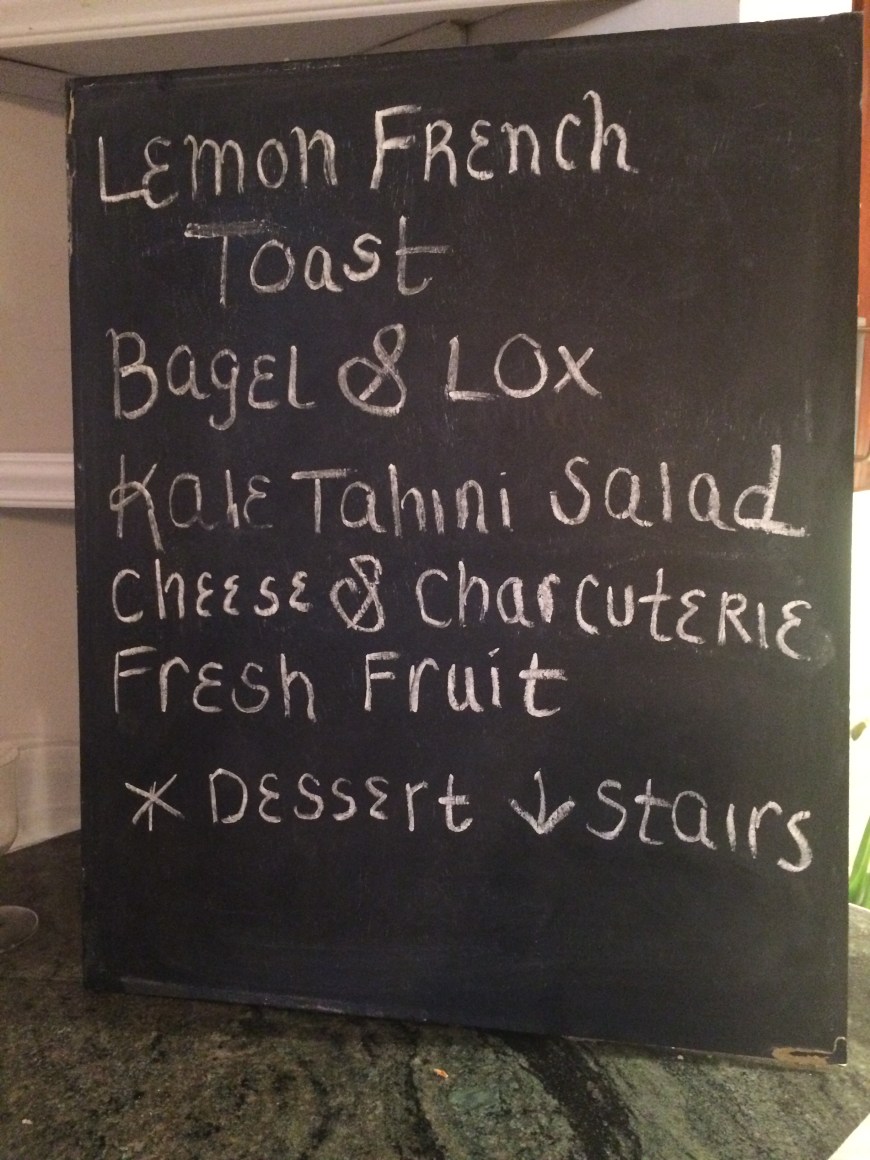 Lemon French
Toast
Bagel & Lox
Kale Tahini Salad
Cheese & Charcuterie
Fresh Fruit
* Dessert ↓ Stairs